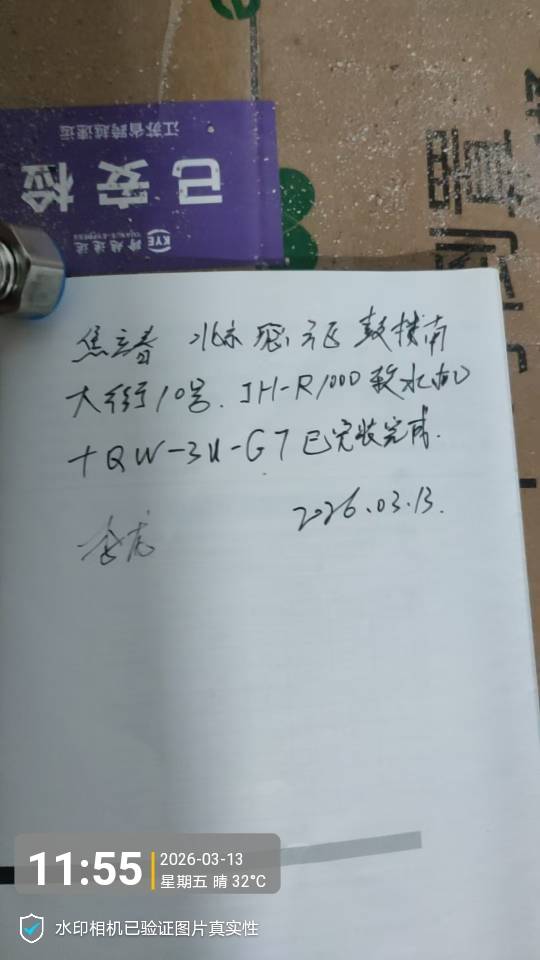 江苏省跨越速运
已安检
KYE
跨越速运
焦立春 北京密云区鼓楼南
大街10号. JH-R1000软水机
+QW-3U-G7已安装完成.
2026.03.13.
11:55
2026-03-13
星期五 晴 32°C
水印相机已验证图片真实性